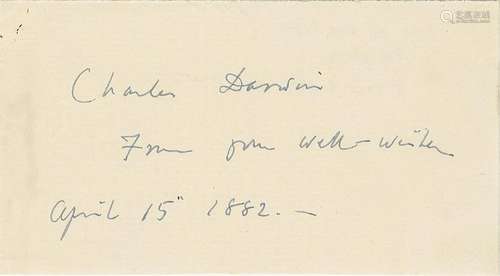 Charles Darwin
From your well-wisher
April 15 1882. —